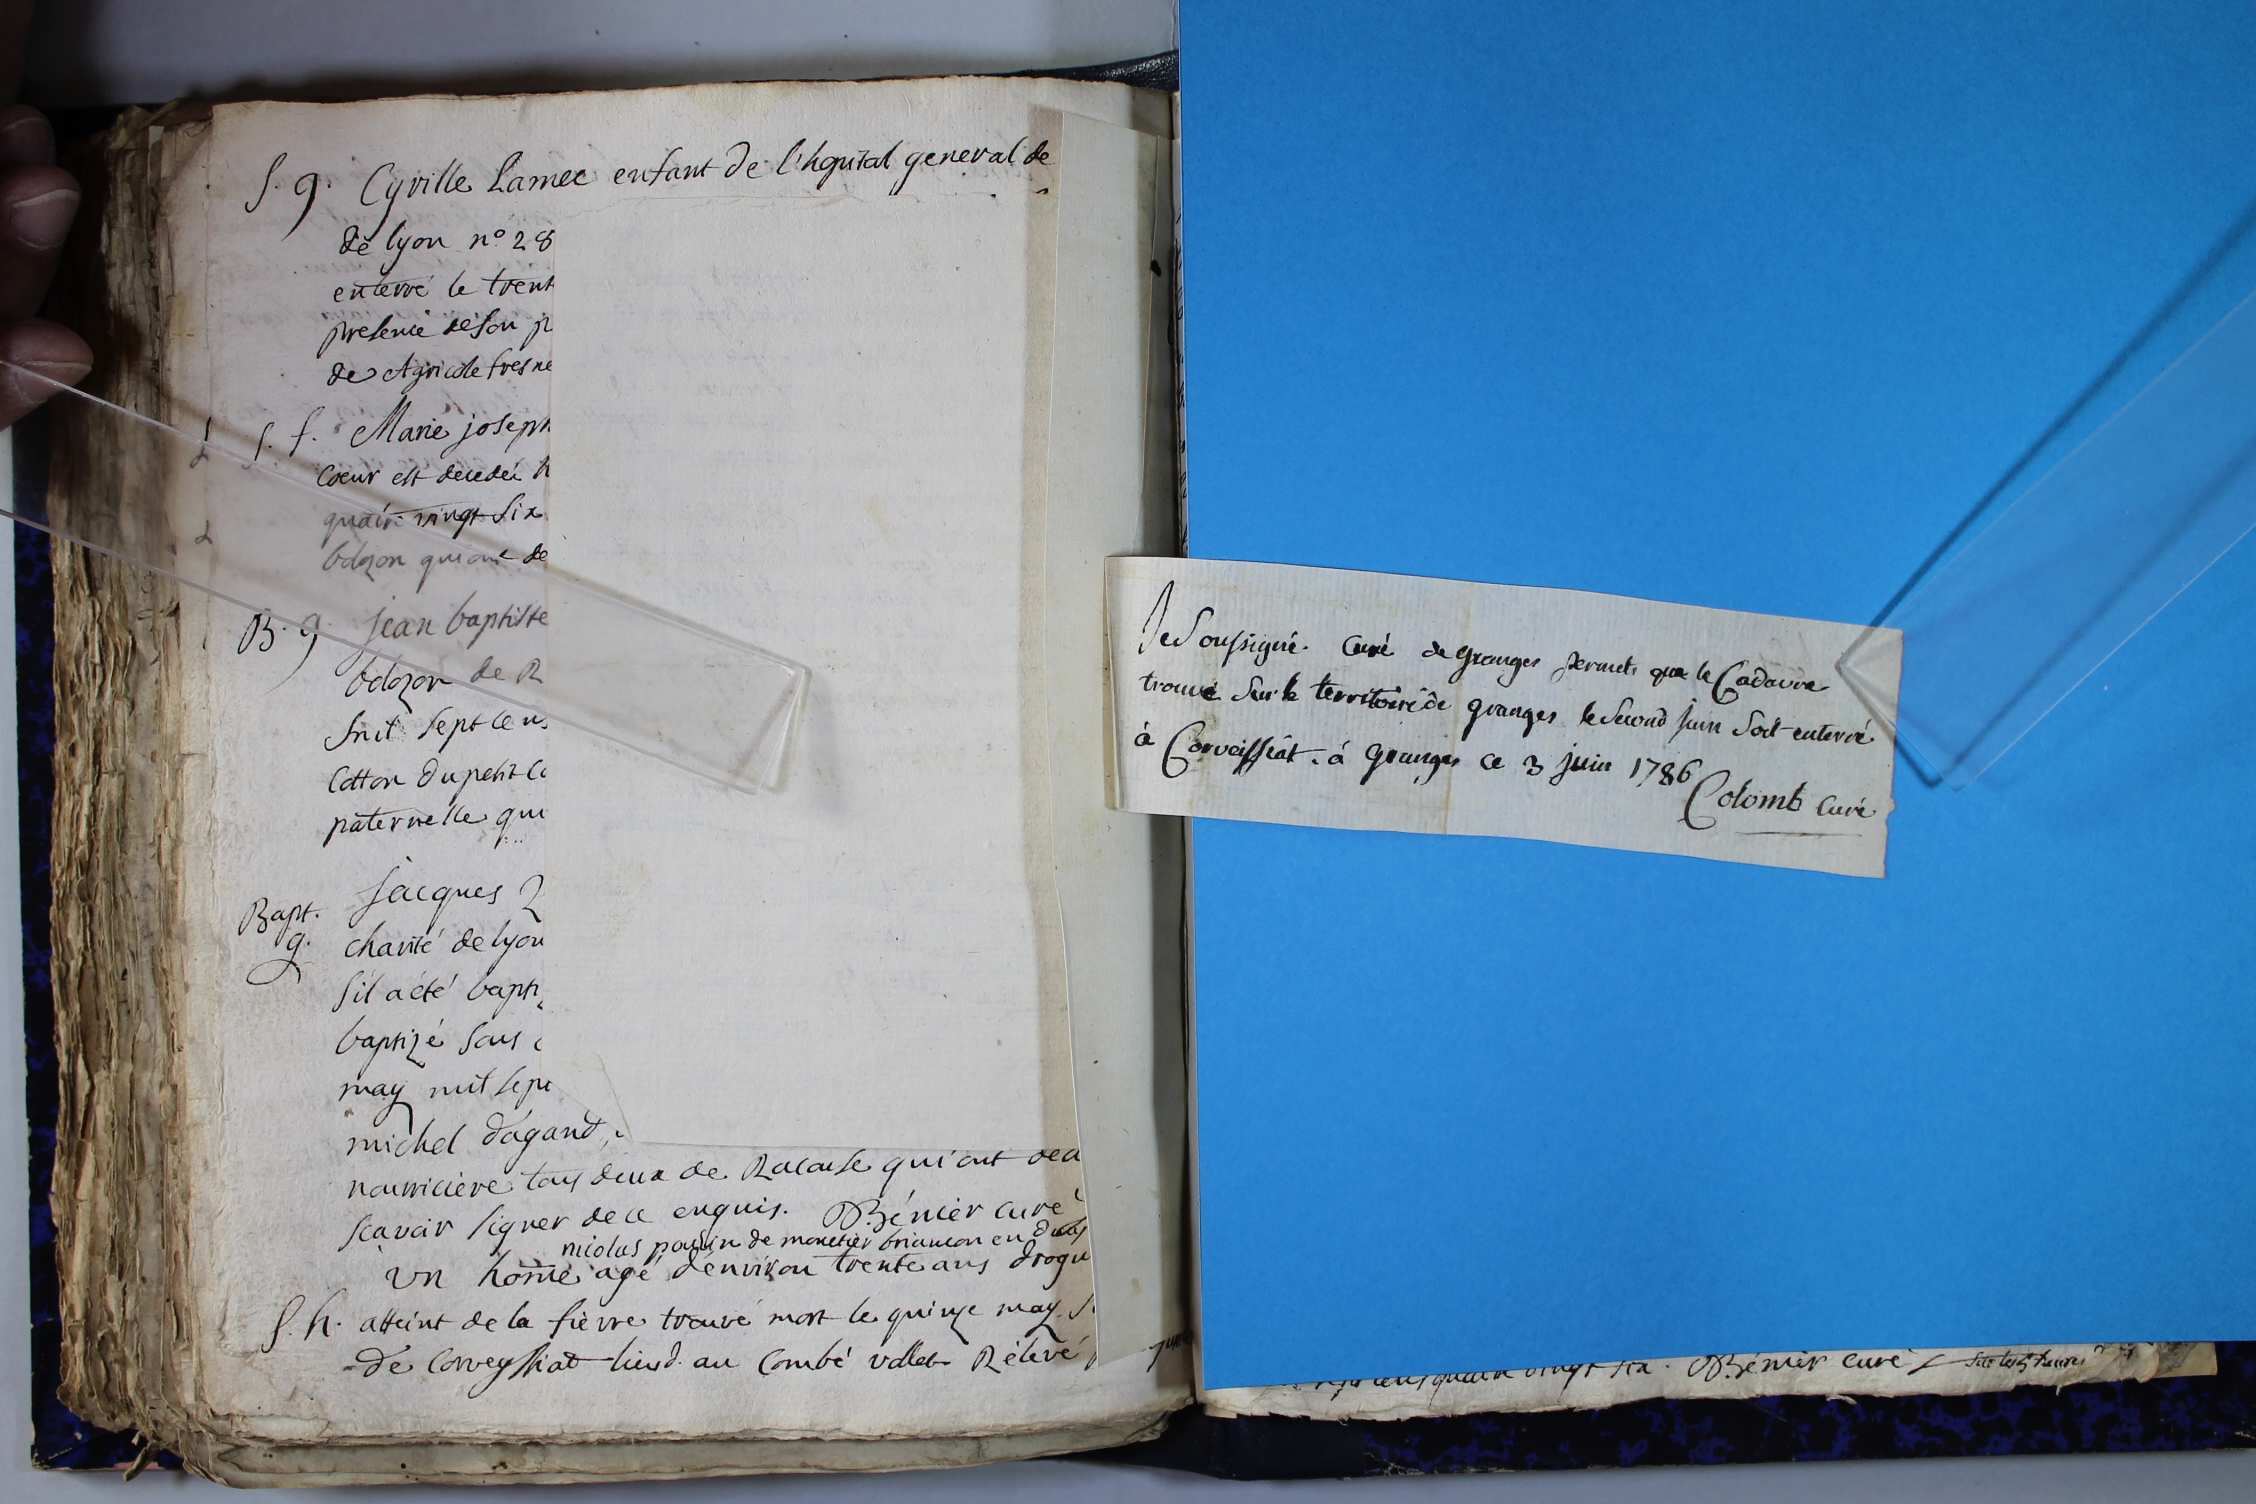 S. g. Cyrille Lamec enfant de l'hopital general de
de lyon n° 28
enterré le trent
presence de son p
de Agricole fresne
S. f. Marie joseph
Coeur est decedée h
quatre vingt six
bolozon qui ont de
B. g. jean baptiste
bolozon de R
mil sept cens
Cotton du petit Co
paternelle qui
Bapt. g. jacques
charité de lyon
s'il a été bapti
baptizé sous c
may mil sept
michel dagand,
nourriciere tous deux de Racouse qui ont
scavoir signer de ce enquis. Bénier curé
nicolas de monetier briancon en
un home agé d'environ trente ans drogu
S. h. atteint de la fièvre trouvé mort le quinze may
de Corveyssiat lieud. au combé vollet Rélevé
Je soussigné curé de granges permets que le Cadavre
trouvé sur le territoire de granges le second juin soit enterré
à Corveissiat. à granges ce 3 juin 1786
Colomb curé
quatre vingt six. Bénier curé